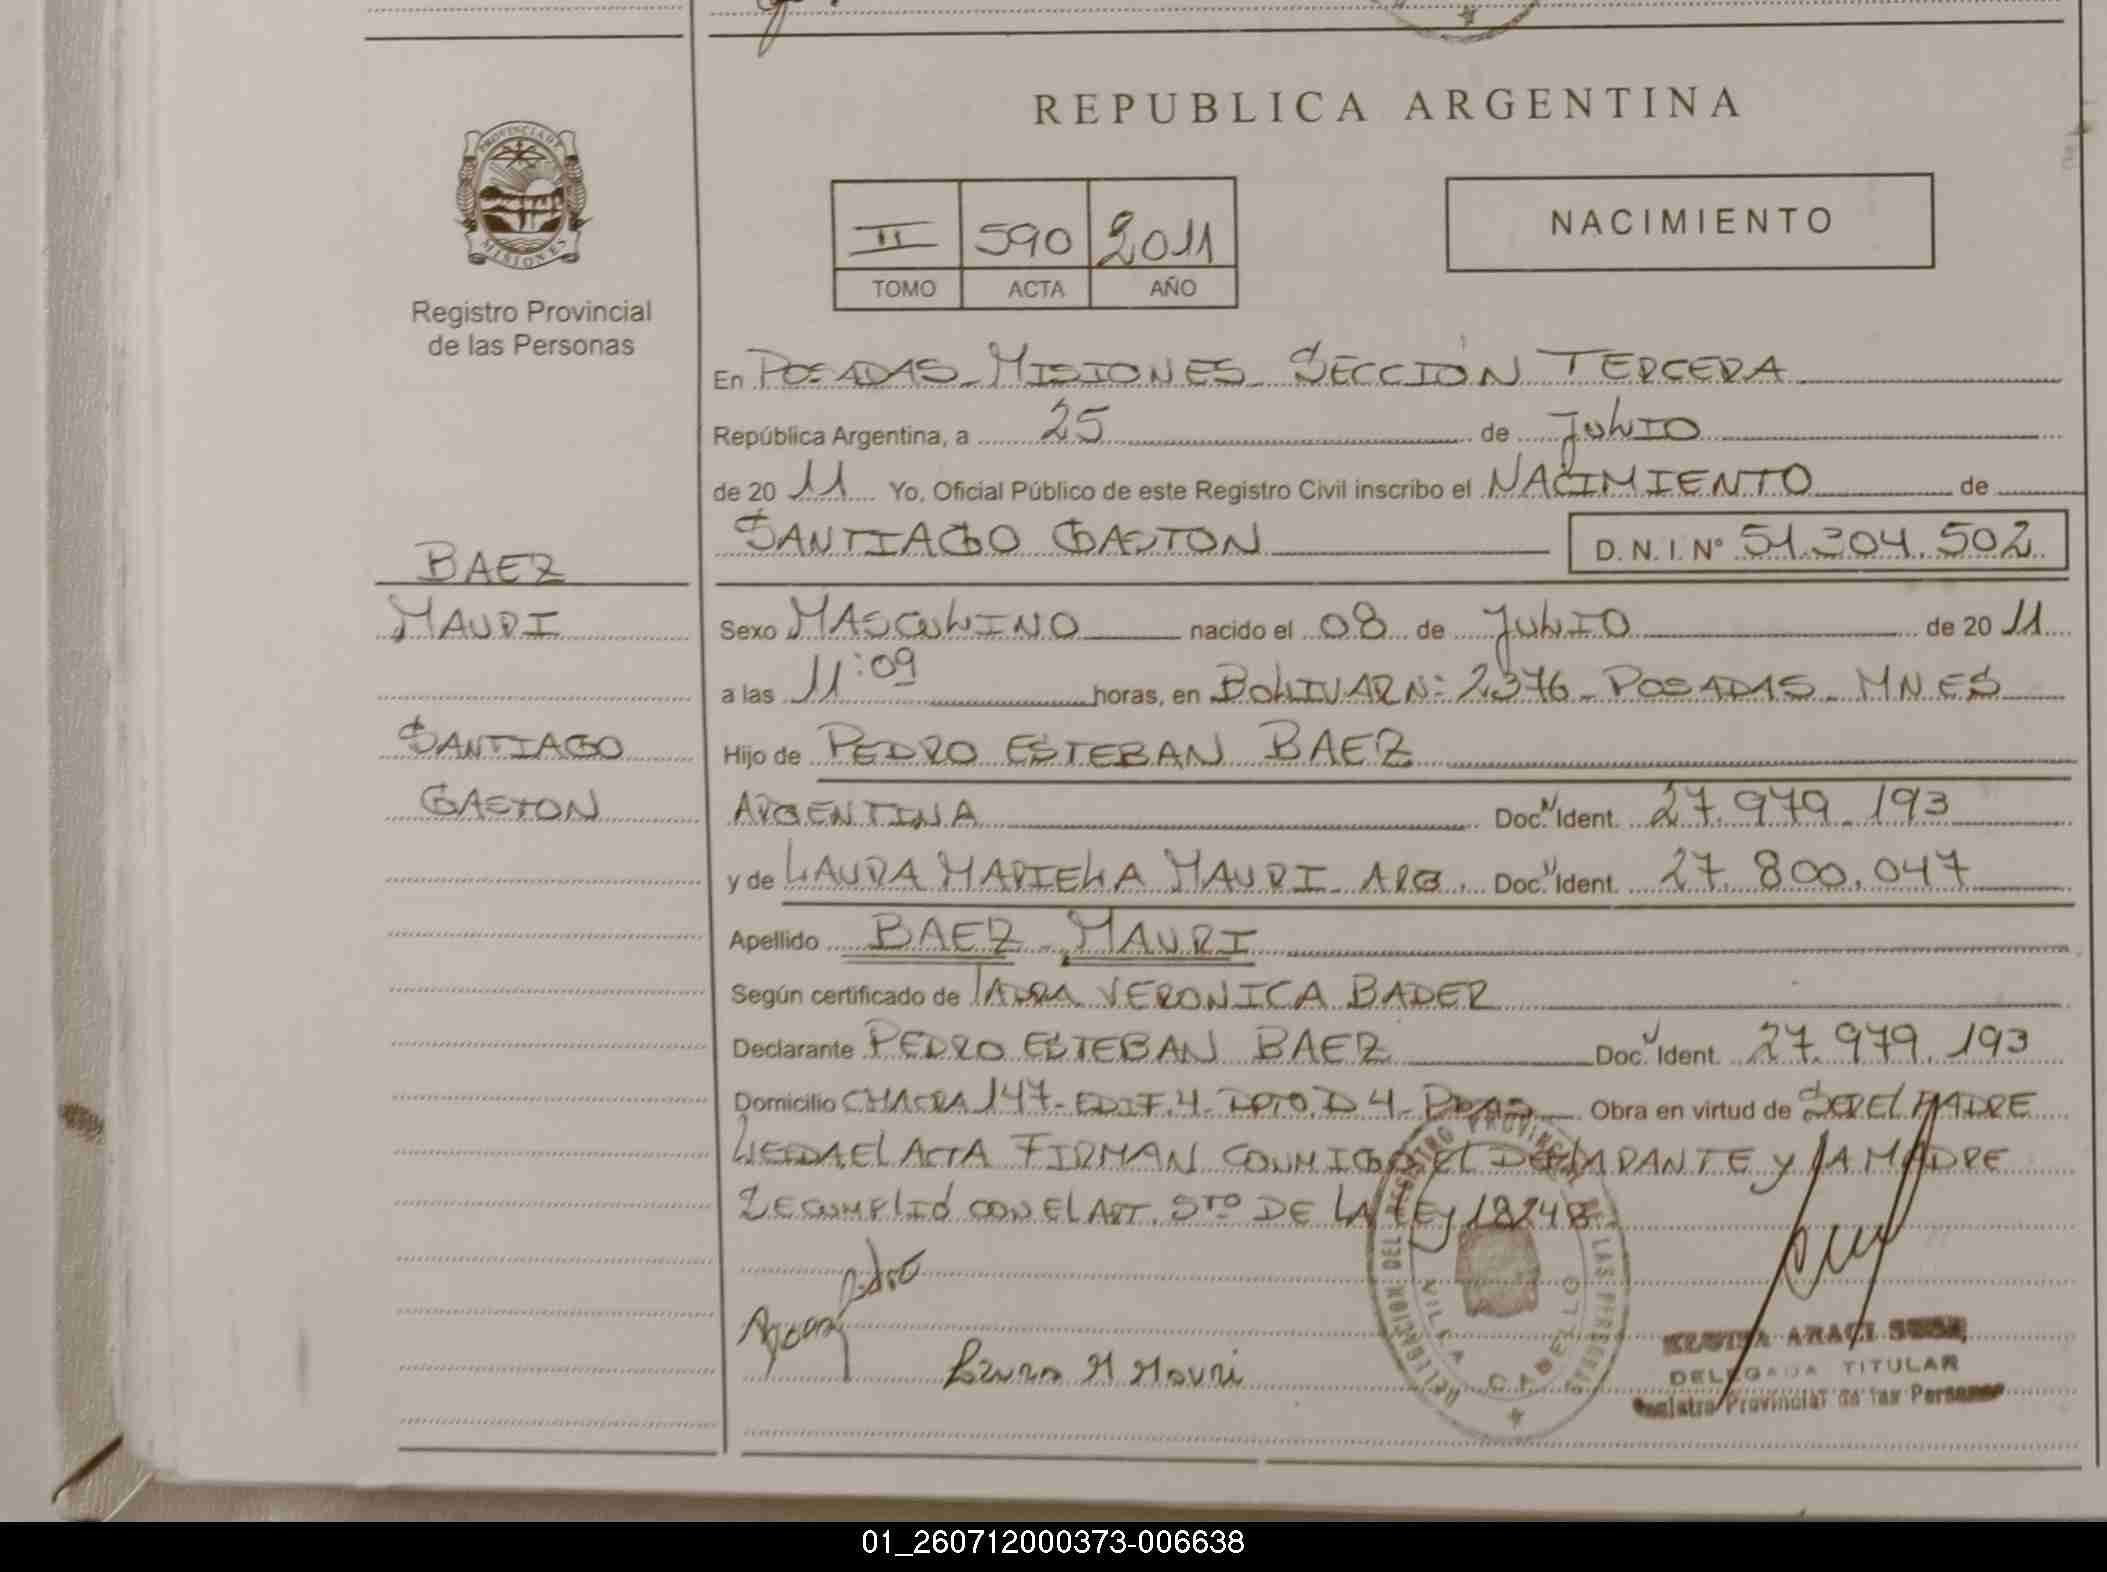 REPUBLICA ARGENTINA
PROVINCIA DE
MISIONES
Registro Provincial
de las Personas
II 590 2011
TOMO ACTA AÑO
NACIMIENTO
En POSADAS - MISIONES - SECCIÓN TERCERA
República Argentina, a 25 de JULIO
de 20 11 Yo, Oficial Público de este Registro Civil inscribo el NACIMIENTO de
SANTIAGO GASTON D.N.I. Nº 51.304.502
BAEZ
MAURI
SANTIAGO
GASTON
Sexo MASCULINO nacido el 08 de JULIO de 20 11
a las 11:09 horas, en BOLIVAR Nº 2376 - POSADAS - MNES
Hijo de PEDRO ESTEBAN BAEZ
ARGENTINA Doc. Ident. 27.979.193
y de LAURA MARIELA MAURI - ARG. Doc. Ident. 27.800.047
Apellido BAEZ - MAURI
Según certificado de VERONICA BADER
Declarante PEDRO ESTEBAN BAEZ Doc. Ident. 27.979.193
Domicilio CHACRA 147 - EDIF. 4 - DPTO. D 4 - PDAS Obra en virtud de SER EL PADRE
LEIDA EL ACTA FIRMAN CONMIGO EL DECLARANTE Y LA MADRE
SE CUMPLIÓ CON EL ART. 5TO DE LA LEY 18248
Pedro
Laura M Mauri
DELEGACION DEL REGISTRO PROVINCIAL DE LAS PERSONAS
VILLA CABELLO
ARACI SOSA
DELEGADA TITULAR
Registro Provincial de las Personas
01_260712000373-006638